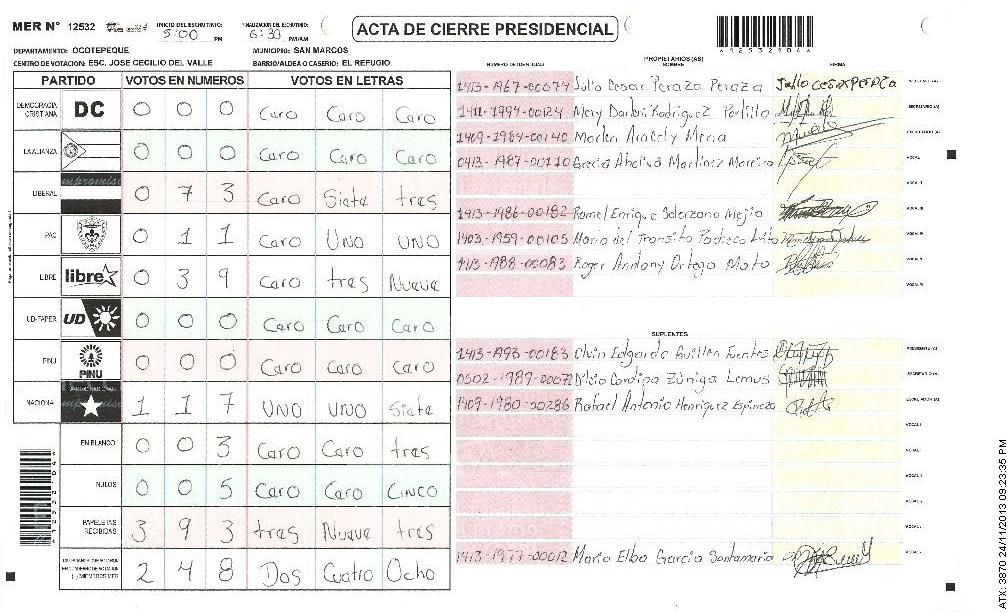 MER Nº 12532
INICIO DEL ESCRUTINIO: 5:00 PM
FINALIZACION DEL ESCRUTINIO: 6:30 PM/AM
ACTA DE CIERRE PRESIDENCIAL
DEPARTAMENTO: OCOTEPEQUE
MUNICIPIO: SAN MARCOS
CENTRO DE VOTACION: ESC. JOSE CECILIO DEL VALLE
BARRIO/ALDEA O CASERIO: EL REFUGIO
PARTIDO VOTOS EN NUMEROS VOTOS EN LETRAS
DEMOCRACIA CRISTIANA DC 0 0 0 Caro Caro Caro
LA ALIANZA 0 0 0 Caro Caro Caro
LIBERAL 0 7 3 Caro Siete tres
PAC 0 1 1 Caro UNO UNO
LIBRE libre 0 3 9 Caro tres Nueve
UD-FAPER UD 0 0 0 Caro Caro Caro
PINU PINU 0 0 0 Caro Caro Caro
NACIONAL 1 1 7 UNO UNO Siete
EN BLANCO 0 0 3 Caro Caro tres
NULOS 0 0 5 Caro Caro CINCO
PAPELETAS RECIBIDAS 3 9 3 tres Nueve tres
2 4 8 Dos Cuatro Ocho
PROPIETARIOS (AS)
NUMERO DE IDENTIDAD NOMBRE FIRMA
1413-1967-00074 Julio Cesar Peraza Peraza Julio CESAR PERAZA
1411-1994-00124 Mery Darlin Rodriguez Portillo
1409-1984-00140 Marlen Aracely Meria
0413-1987-00110
1413-1986-00182 Ramel Enrique Solorzano Mejia
1403-1959-00105 Maria del Transito Pacheco
1413-1988-00083 Roger Antony Ortega Mata
SUPLENTES
1413-1993-00183 Olvin Edgardo Guillen Fuentes
0502-1989-00072 Zuniga Lemus
1409-1980-00286 Rafael Antonio Henriquez Espinoza
1413-1977-00012 Maria Elba Garcia Santamaria
ATX: 3870 24/11/2013 09:23:35 PM